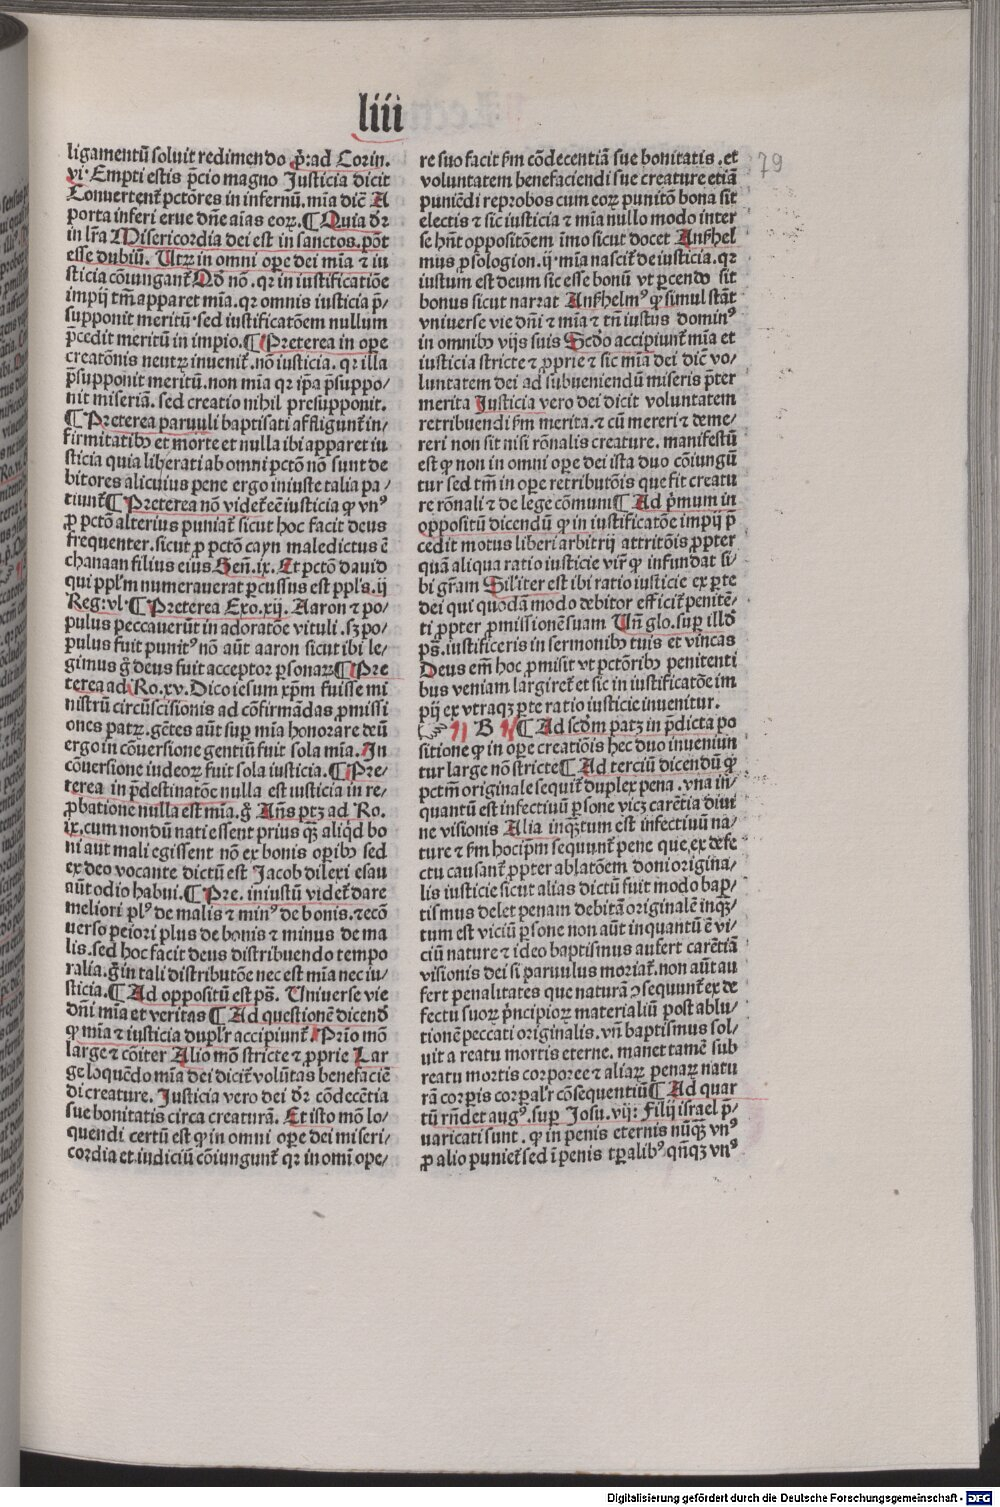 liii
79
ligamentū soluit redimendo p̄: ad Corin.
vi. Empti estis p̄cio magno Justicia dicit
Conuertent᷑ pctōres in infernū. mīa dic̄ A
porta inferi erue dn̄e aīas eoꝝ. ¶ Quia dr̄
in lr̄a Misericordia dei est in sanctos. pōt
esse dubiū. Utꝝ in omni oꝑe dei mīa ⁊ iu
sticia cōiungant᷑ Qd̄ nō. qꝛ in iustificatiōe
impij tm̄ apparet mīa. qꝛ omnis iusticia p̄/
supponit meritū. sed iustificatōem nullum
p̄cedit meritū in impio. ¶ Preterea in oꝑe
creatōnis neutꝝ inuenit᷑. nō iusticia. qꝛ illa
p̄supponit meritū. non mīa qꝛ ip̄a p̄suppo/
nit miseriā. sed creatio nihil presupponit.
¶ Preterea paruuli baptisati affligunt᷑ in/
firmitatibꝰ et morte et nulla ibi apparet iu
sticia quia liberati ab omni pctō nō sunt de
bitores alicuius pene ergo iniuste talia pa/
tiunt᷑ ¶ Preterea nō videt᷑ eē iusticia ꝙ vnꝰ
ꝓ pctō alterius puniat᷑ sicut hoc facit deus
frequenter. sicut ꝓ pctō cayn maledictus ē
chanaan filius eius Gen̄. ix. Et pctō dauid
qui pplm̄ numerauerat ꝑcussus est ppls̄. ij
Reg: vl. ¶ Preterea Exo. xij. Aaron ⁊ po/
pulus peccauerūt in adoratōe vituli. sꝫ po/
pulus fuit punitꝰ nō aūt aaron sicut ibi le/
gimus g̊ deus fuit acceptor ꝑsonaꝝ ¶ Pre
terea ad Ro. xv. Dico iesum xp̄m fuisse mi
nistrū circūscisionis ad cōfirmādas ꝓmissi
ones patꝝ. gētes aūt suꝑ mīa honorare deū
ergo in cōuersione gentiū fuit sola mīa. In
cōuersione iudeoꝝ fuit sola iusticia. ¶ Pre/
terea in p̄destinatōe nulla est iusticia in re/
ꝓbatione nulla est mīa. g̊ Ans̄ ptꝫ ad Ro.
ix. cum nondū nati essent prius qꝫ̄ aliqd̄ bo
ni aut mali egissent nō ex bonis oꝑibꝰ sed
ex deo vocante dictū est Jacob dilexi esau
aūt odio habui. ¶ Pre. iniustū videt᷑ dare
meliori plꝰ de malis ⁊ minꝰ de bonis. ⁊ ecō
uerso peiori plus de bonis ⁊ minus de ma
lis. sed hoc facit deus distribuendo tempo
ralia. g̊ in tali distributōe nec est mīa nec iu/
sticia. ¶ Ad oppositū est ps̄. Uniuerse vie
dn̄i mīa et veritas ¶ Ad questionē dicend̄
ꝙ mīa ⁊ iusticia duplr̄ accipiunt᷑. Prīo mō
large ⁊ cōiter Alio mō stricte ⁊ ꝓprie Lar
ge loquēdo mīa dei dicit᷑ volūtas benefaciē
di creature. Justicia vero dei dr̄ cōdecētia
sue bonitatis circa creaturā. Et isto mō lo/
quendi certū est ꝙ in omni oꝑe dei miseri/
cordia et iudiciū cōiungunt᷑ qꝛ in omī oꝑe/
re suo facit ẜm cōdecentiā sue bonitatis. et
voluntatem benefaciendi sue creature etiā
puniēdi reprobos cum eoꝝ punitō bona sit
electis ⁊ sic iusticia ⁊ mīa nullo modo inter
se hn̄t oppositōem īmo sicut docet Anẜhel
mus ꝓsologion. ij. mīa nascit᷑ de iusticia. qꝛ
iustum est deum sic esse bonū vt ꝑcendo sit
bonus sicut narrat Anẜhelmꝰ ꝙ simul stāt
vniuerse vie dn̄i ⁊ mīa ⁊ tn̄ iustus dominꝰ
in omnibꝰ vijs suis Scd̄o accipiunt᷑ mīa et
iusticia stricte ⁊ ꝓprie ⁊ sic mīa dei dic̄ vo/
luntatem dei ad subueniendū miseris p̄ter
merita Justicia vero dei dicit voluntatem
retribuendi ẜm merita. ⁊ cū mereri ⁊ deme/
reri non sit nisi rōnalis creature. manifestū
est ꝙ non in omni oꝑe dei ista duo cōiungū
tur sed tm̄ in oꝑe retributōis que fit creatu
re rōnali ⁊ de lege cōmuni ¶ Ad p̄mum in
oppositū dicendū ꝙ in iustificatōe impij p̄
cedit motus liberi arbitrij attritōis ꝓpter
quā aliqua ratio iusticie vir̄ ꝙ infundat si/
bi gr̄am Sil̄iter est ibi ratio iusticie ex ꝑte
dei qui quodā modo debitor efficit᷑ penitē/
ti ꝓpter ꝓmissionē suam Un̄ glo. suꝑ illd̄
ps̄. iustificeris in sermonibꝰ tuis et vincas
Deus em̄ hoc ꝓmisit vt pctōribꝰ penitenti
bus veniam largiret᷑ et sic in iustificatōe im
pij ex vtraqꝫ ꝑte ratio iusticie inuenitur.
☞ B ¶ Ad scd̄m patꝫ in p̄dicta po
sitione ꝙ in oꝑe creatiōis hec duo inueniun
tur large nō stricte ¶ Ad terciū dicendū ꝙ
pctm̄ originale sequit᷑ duplex pena. vna in/
quantū est infectiuū ꝑsone vicꝫ carētia diui
ne visionis Alia inqꝫ̄tum est infectiuū na/
ture ⁊ ẜm hoc ip̄m sequunt᷑ pene que ex defe
ctu causant᷑ ꝓpter ablatōem doni origina/
lis iusticie sicut alias dictū fuit modo bap/
tismus delet penam debitā originalē inqꝫ̄/
tum est viciū ꝑsone non aūt inquantū ē vi/
ciū nature ⁊ ideo baptismus aufert carētiā
visionis dei si paruulus moriat᷑. non aūt au
fert penalitates que naturā ꝯsequunt᷑ ex de
fectu suoꝝ p̄ncipioꝝ materialiū post ablu/
tionē peccati originalis. vn̄ baptismus sol/
uit a reatu mortis eterne. manet tamē sub
reatu mortis corporee ⁊ aliaꝝ penaꝝ natu
rā corꝑis corꝑalr̄ cōsequentiū ¶ Ad quar
tū rn̄det augꝰ. suꝑ Josu. vij: Filij israel p̄/
uaricati sunt. ꝙ in penis eternis nūqꝫ̄ vnꝰ
ꝓ alio puniet᷑ sed ī penis tꝑalibꝰ qn̄qꝫ vnꝰ
Digitalisierung gefördert durch die Deutsche Forschungsgemeinschaft - DFG